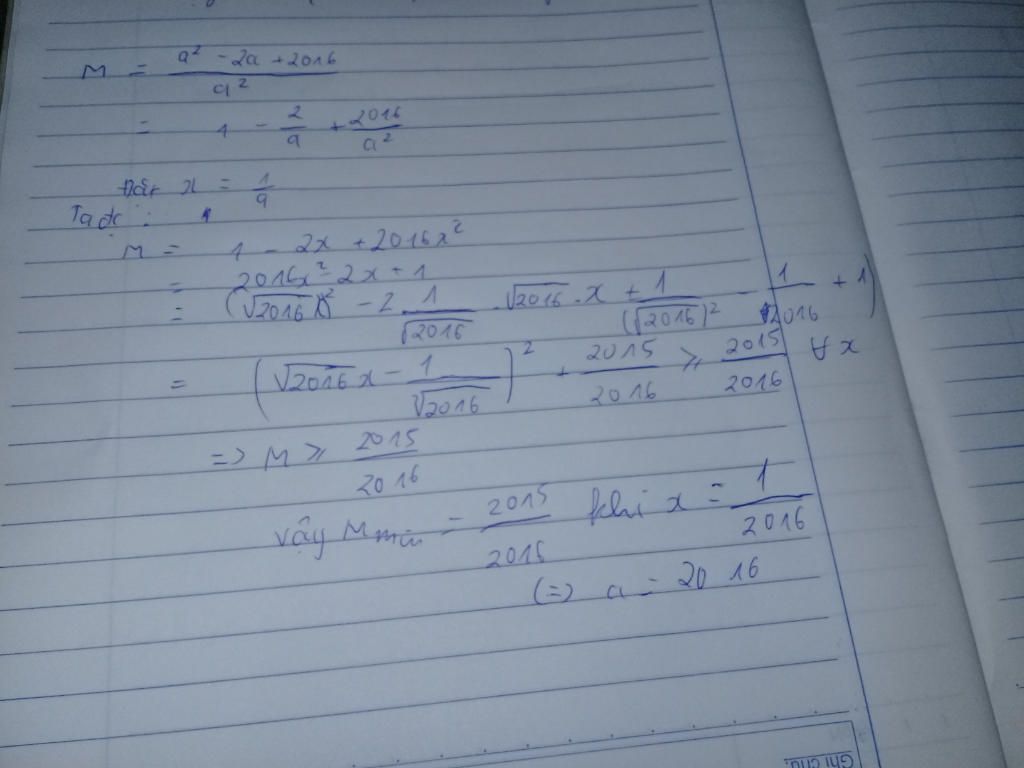 M = \frac{a² - 2a + 2016}{a²}
= 1 - \frac{2}{a} + \frac{2016}{a²}
Đặt x = \frac{1}{a}
Ta đc :
M = 1 - 2x + 2016x²
= 2016x² - 2x + 1
= (√2016 x)² - 2 \frac{1}{√2016} . √2016 . x + \frac{1}{(√2016)²} - \frac{1}{2016} + 1)
= (√2016 x - \frac{1}{√2016})² + \frac{2015}{2016} ⩾ \frac{2015}{2016} ∀ x
=> M ⩾ \frac{2015}{2016}
vậy M min = \frac{2015}{2016} khi x = \frac{1}{2016}
(=) a = 2016
Ghi chú: